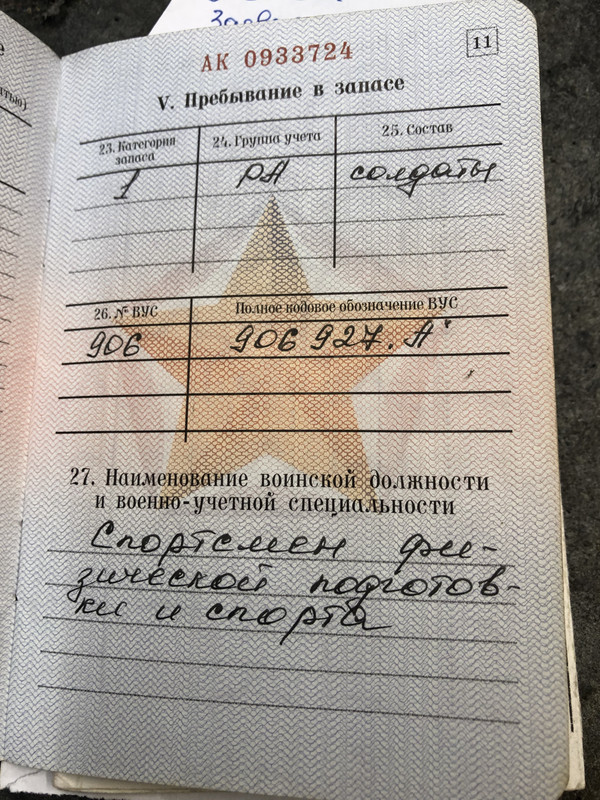 Заяв
АК 0933724
11
V. Пребывание в запасе
23. Категория запаса
24. Группа учета
25. Состав
1
РА
солдаты
26. № ВУС
Полное кодовое обозначение ВУС
906
906 927. А
27. Наименование воинской должности
и военно-учетной специальности
Спортсмен фи-
зической подготов-
ки и спорта